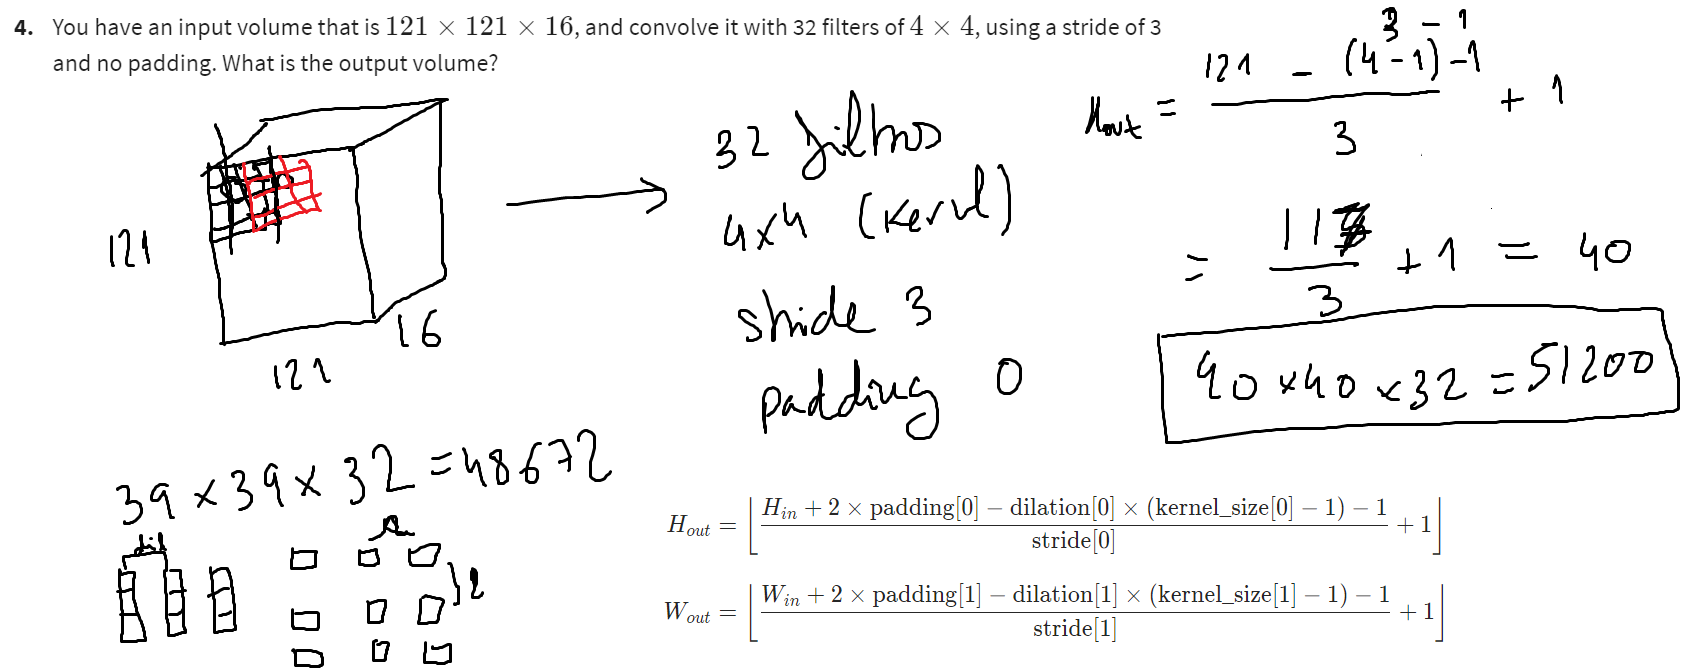 4. You have an input volume that is 121 × 121 × 16, and convolve it with 32 filters of 4 × 4, using a stride of 3
and no padding. What is the output volume?
3 - 1
121 - (4-1)-1
Hout = + 1
3
32 filtros
4x4 (kernel)
stride 3
padding 0
121
121
16
= + 1 = 40
3
40 x 40 x 32 = 51200
39 x 39 x 32 = 48672
dil
2
H_out = ⌊ (H_in + 2 × padding[0] − dilation[0] × (kernel_size[0] − 1) − 1) / stride[0] + 1 ⌋
W_out = ⌊ (W_in + 2 × padding[1] − dilation[1] × (kernel_size[1] − 1) − 1) / stride[1] + 1 ⌋